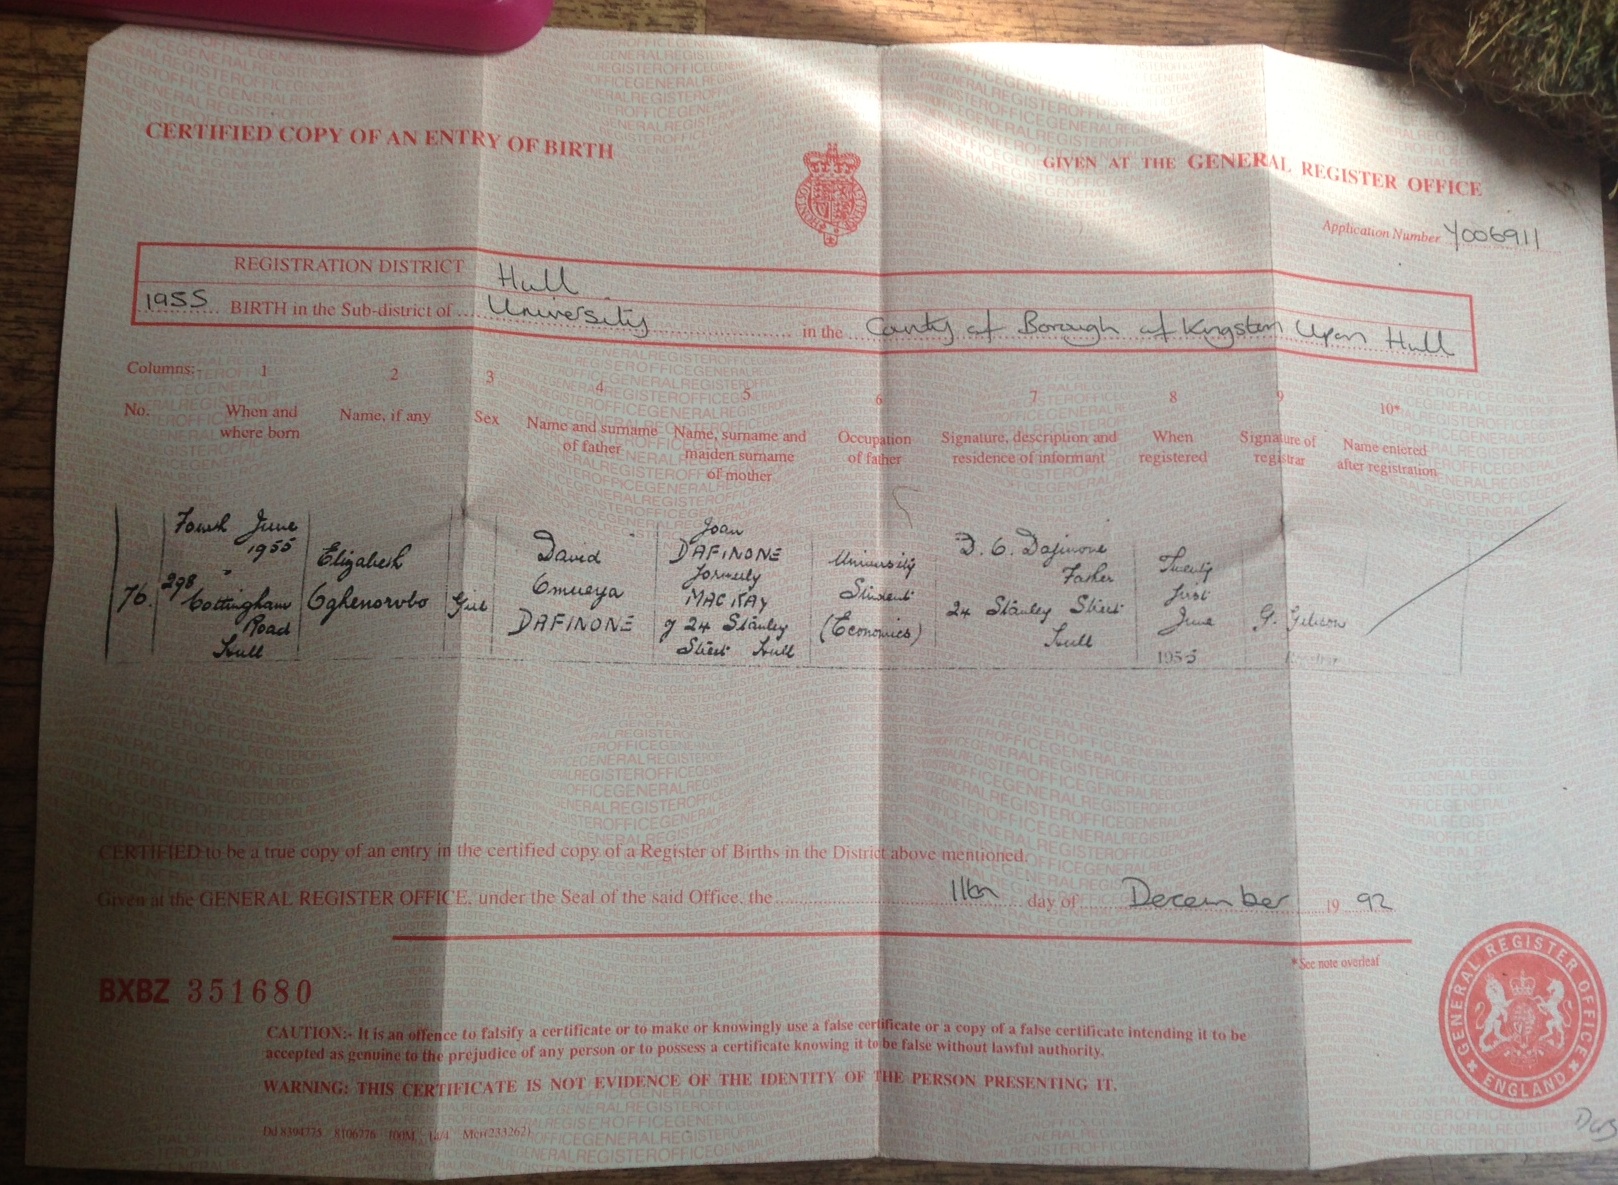 CERTIFIED COPY OF AN ENTRY OF BIRTH
GIVEN AT THE GENERAL REGISTER OFFICE
Application Number Y006911
REGISTRATION DISTRICT Hull
1955 BIRTH in the Sub-district of University in the County of Borough of Kingston Upon Hull
Columns:- 1 2 3 4 5 6 7 8 9 10*
No.
When and
where born
Name, if any
Sex
Name and surname
of father
Name, surname and
maiden surname
of mother
Occupation
of father
Signature, description and
residence of informant
When
registered
Signature of
registrar
Name entered
after registration
76.
Fourth June
1955
298
Cottingham
Road
Hull
Elizabeth
Oghenorobo
Girl
David
Omueya
DAFINONE
Joan
DAFINONE
formerly
MACKAY
of 24 Stanley
Street Hull
University
Student
(Economics)
D. O. Dafinone
Father
24 Stanley Street
Hull
Twenty
first
June
1955
G. Gibson
Registrar
CERTIFIED to be a true copy of an entry in the certified copy of a Register of Births in the District above mentioned.
Given at the GENERAL REGISTER OFFICE, under the Seal of the said Office, the 11th day of December 19 92
*See note overleaf
BXBZ 351680
CAUTION:- It is an offence to falsify a certificate or to make or knowingly use a false certificate or a copy of a false certificate intending it to be
accepted as genuine to the prejudice of any person or to possess a certificate knowing it to be false without lawful authority.
WARNING: THIS CERTIFICATE IS NOT EVIDENCE OF THE IDENTITY OF THE PERSON PRESENTING IT.
GENERAL REGISTER OFFICE
ENGLAND
Dd 8394775 8106776 100M Mcr(233262)